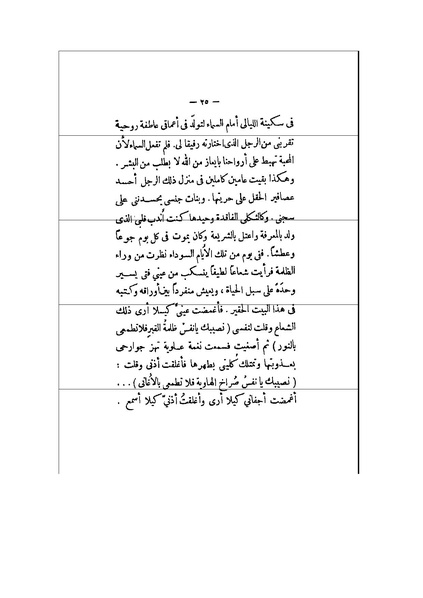 — ٢٥ —
فى سكينة الليالى أمام السماء لتولّد فى أعماقى عاطفة روحية
تقربنى من الرجل الذى اختارته رفيقا لى. فلم تفعل السماء لأن
المحبة تهبط على أرواحنا بايعاز من الله لا بطلب من البشر .
وهكذا بقيت عامين كاملين فى منزل ذلك الرجل أحسد
عصافير الحقل على حريتها. وبنات جنسى يحسدننى على
سجنى. وكالثكلى الفاقدة وحيدها كنت أندب قلبى الذى
ولد بالمعرفة واعتل بالشريعة وكان يموت فى كل يوم جوعًا
وعطشًا. فنى يوم من تلك الأيام السوداء نظرت من وراء
الظلمة فرأيت شعاعًا لطيفًا ينسكب من عينى فتى يسير
وحدَهُ على سبل الحياة ، ويعيش منفردًا بين أوراقه وكتبه
فى هذا البيت الحقير . فأغمضت عينىَّ كيلا أرى ذلك
الشعاع وقلت لنفسى ( نصيبك يانفسْ ظلمةُ القبر فلا تطمعى
بالنور ) ثم أصغيت فسمعت نغمة علوية تهز جوارحى
بعذوبتها وتمتلك كُليتى بطهرها فأغلقت أذنى وقلت :
( نصيبك يا نفسُ صُراخ الهاوية فلا تطمعى بالأغانى ) . . .
أغمضت أجفانى كيلا أرى وأغلقتُ أذنىّ كيلا أسمع .